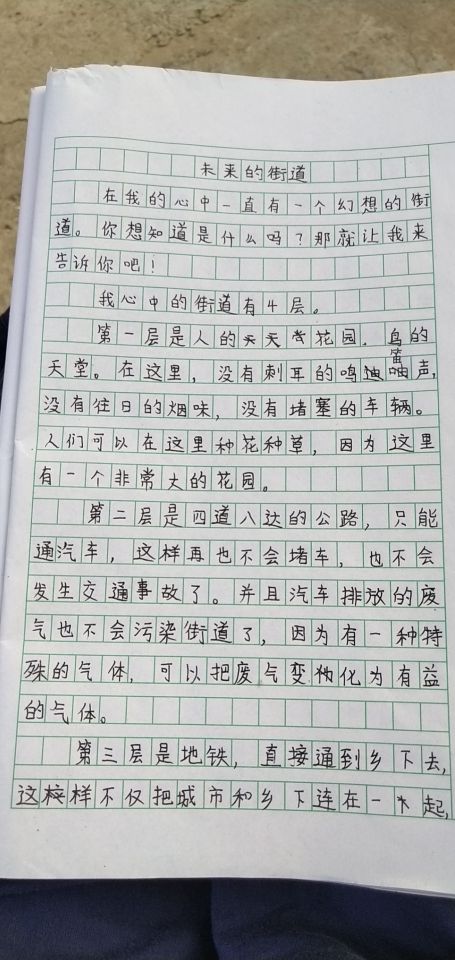 未来的街道
在我的心中一直有一个幻想的街
道。你想知道是什么吗？那就让我来
告诉你吧！
我心中的街道有4层。
第一层是人的天花园，鸟的
天堂。在这里，没有刺耳的鸣笛声，
没有往日的烟味，没有堵塞的车辆。
人们可以在这里种花种草，因为这里
有一个非常大的花园。
第二层是四道八达的公路，只能
通汽车，这样再也不会堵车，也不会
发生交通事故了。并且汽车排放的废
气也不会污染街道了，因为有一种特
殊的气体，可以把废气变化为有益
的气体。
第三层是地铁，直接通到乡下去，
这样不仅把城市和乡下连在一起，